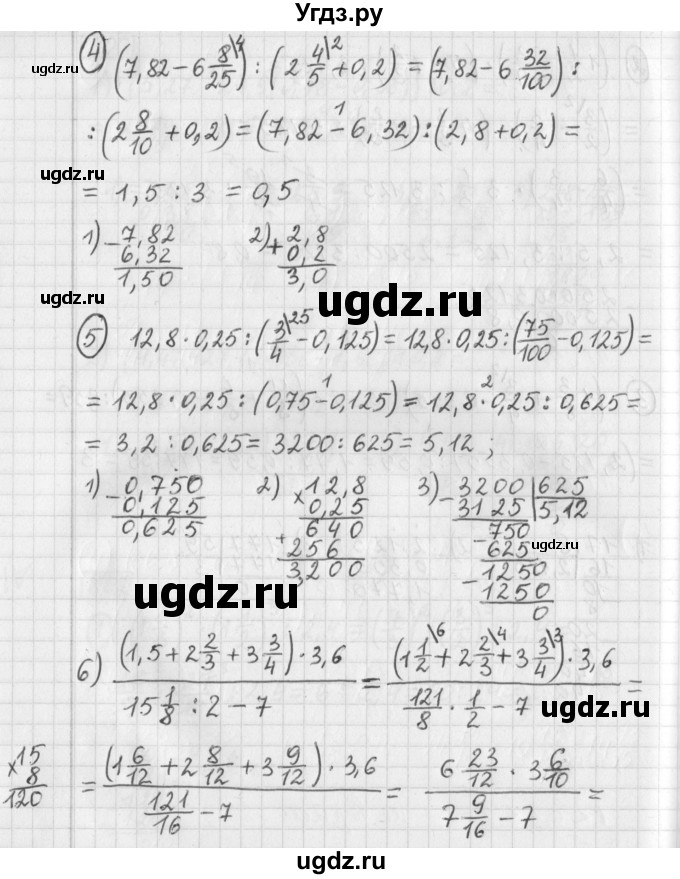 Угдз.ру
4) (7,82 − 6 8/25\4) : (2 4/5\2 + 0,2) = (7,82 − 6 32/100) :
ugdz.ru
: (2 8/10 + 0,2) = (7,82 −1 6,32) : (2,8 + 0,2) =
ugdz.ru
= 1,5 : 3 = 0,5
ugdz.ru
1) − 7,82 6,32 1,50 2) + 2,8 0,2 3,0
ugdz.ru
5) 12,8 · 0,25 : (3/4\25 − 0,125) = 12,8 · 0,25 : (75/100 − 0,125) =
= 12,8 · 0,25 : (0,75 −1 0,125) = 12,8 ·2 0,25 : 0,625 =
= 3,2 : 0,625 = 3200 : 625 = 5,12 ;
1) − 0,750 0,125 0,625 2) × 12,8 0,25 640 + 256 3,200 3) − 3200 625 3125 5,12 − 750 625 − 1250 1250 0
ugdz.ru
ugdz.ru
6) (1,5 + 2 2/3 + 3 3/4) · 3,6 / 15 1/8 : 2 − 7 = (1 1/2\6 + 2 2/3\4 + 3 3/4\3) · 3,6 / 121/8 · 1/2 − 7 =
ugdz.ru
× 15 8 120 = (1 6/12 + 2 8/12 + 3 9/12) · 3,6 / 121/16 − 7 = 6 23/12 · 3 6/10 / 7 9/16 − 7 =
ugdz.ru